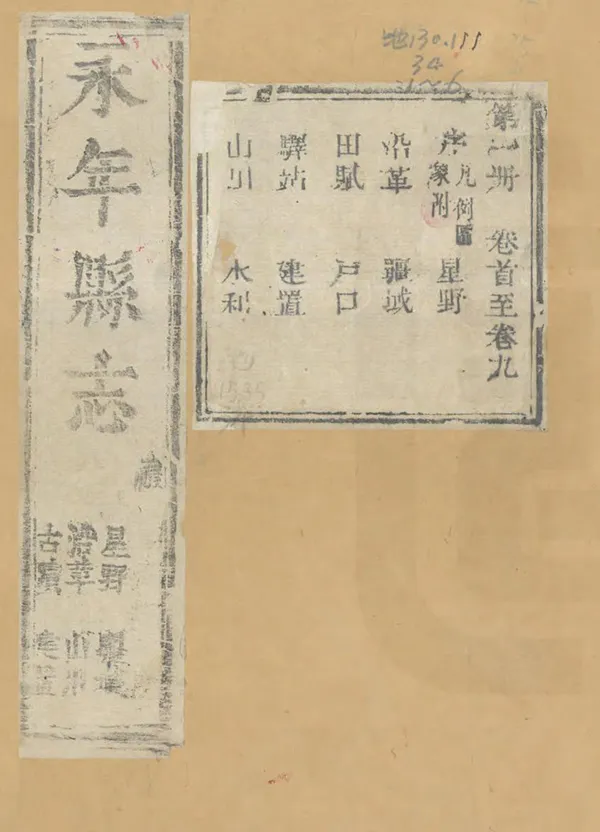 地130.155
34
1~6
第一册 卷首至卷九
序 凡例 圖
象附 星野
沿革 疆域
田賦 戶口
驛站 建置
山川 水利
永年縣志
星野
沿革 山川
古蹟